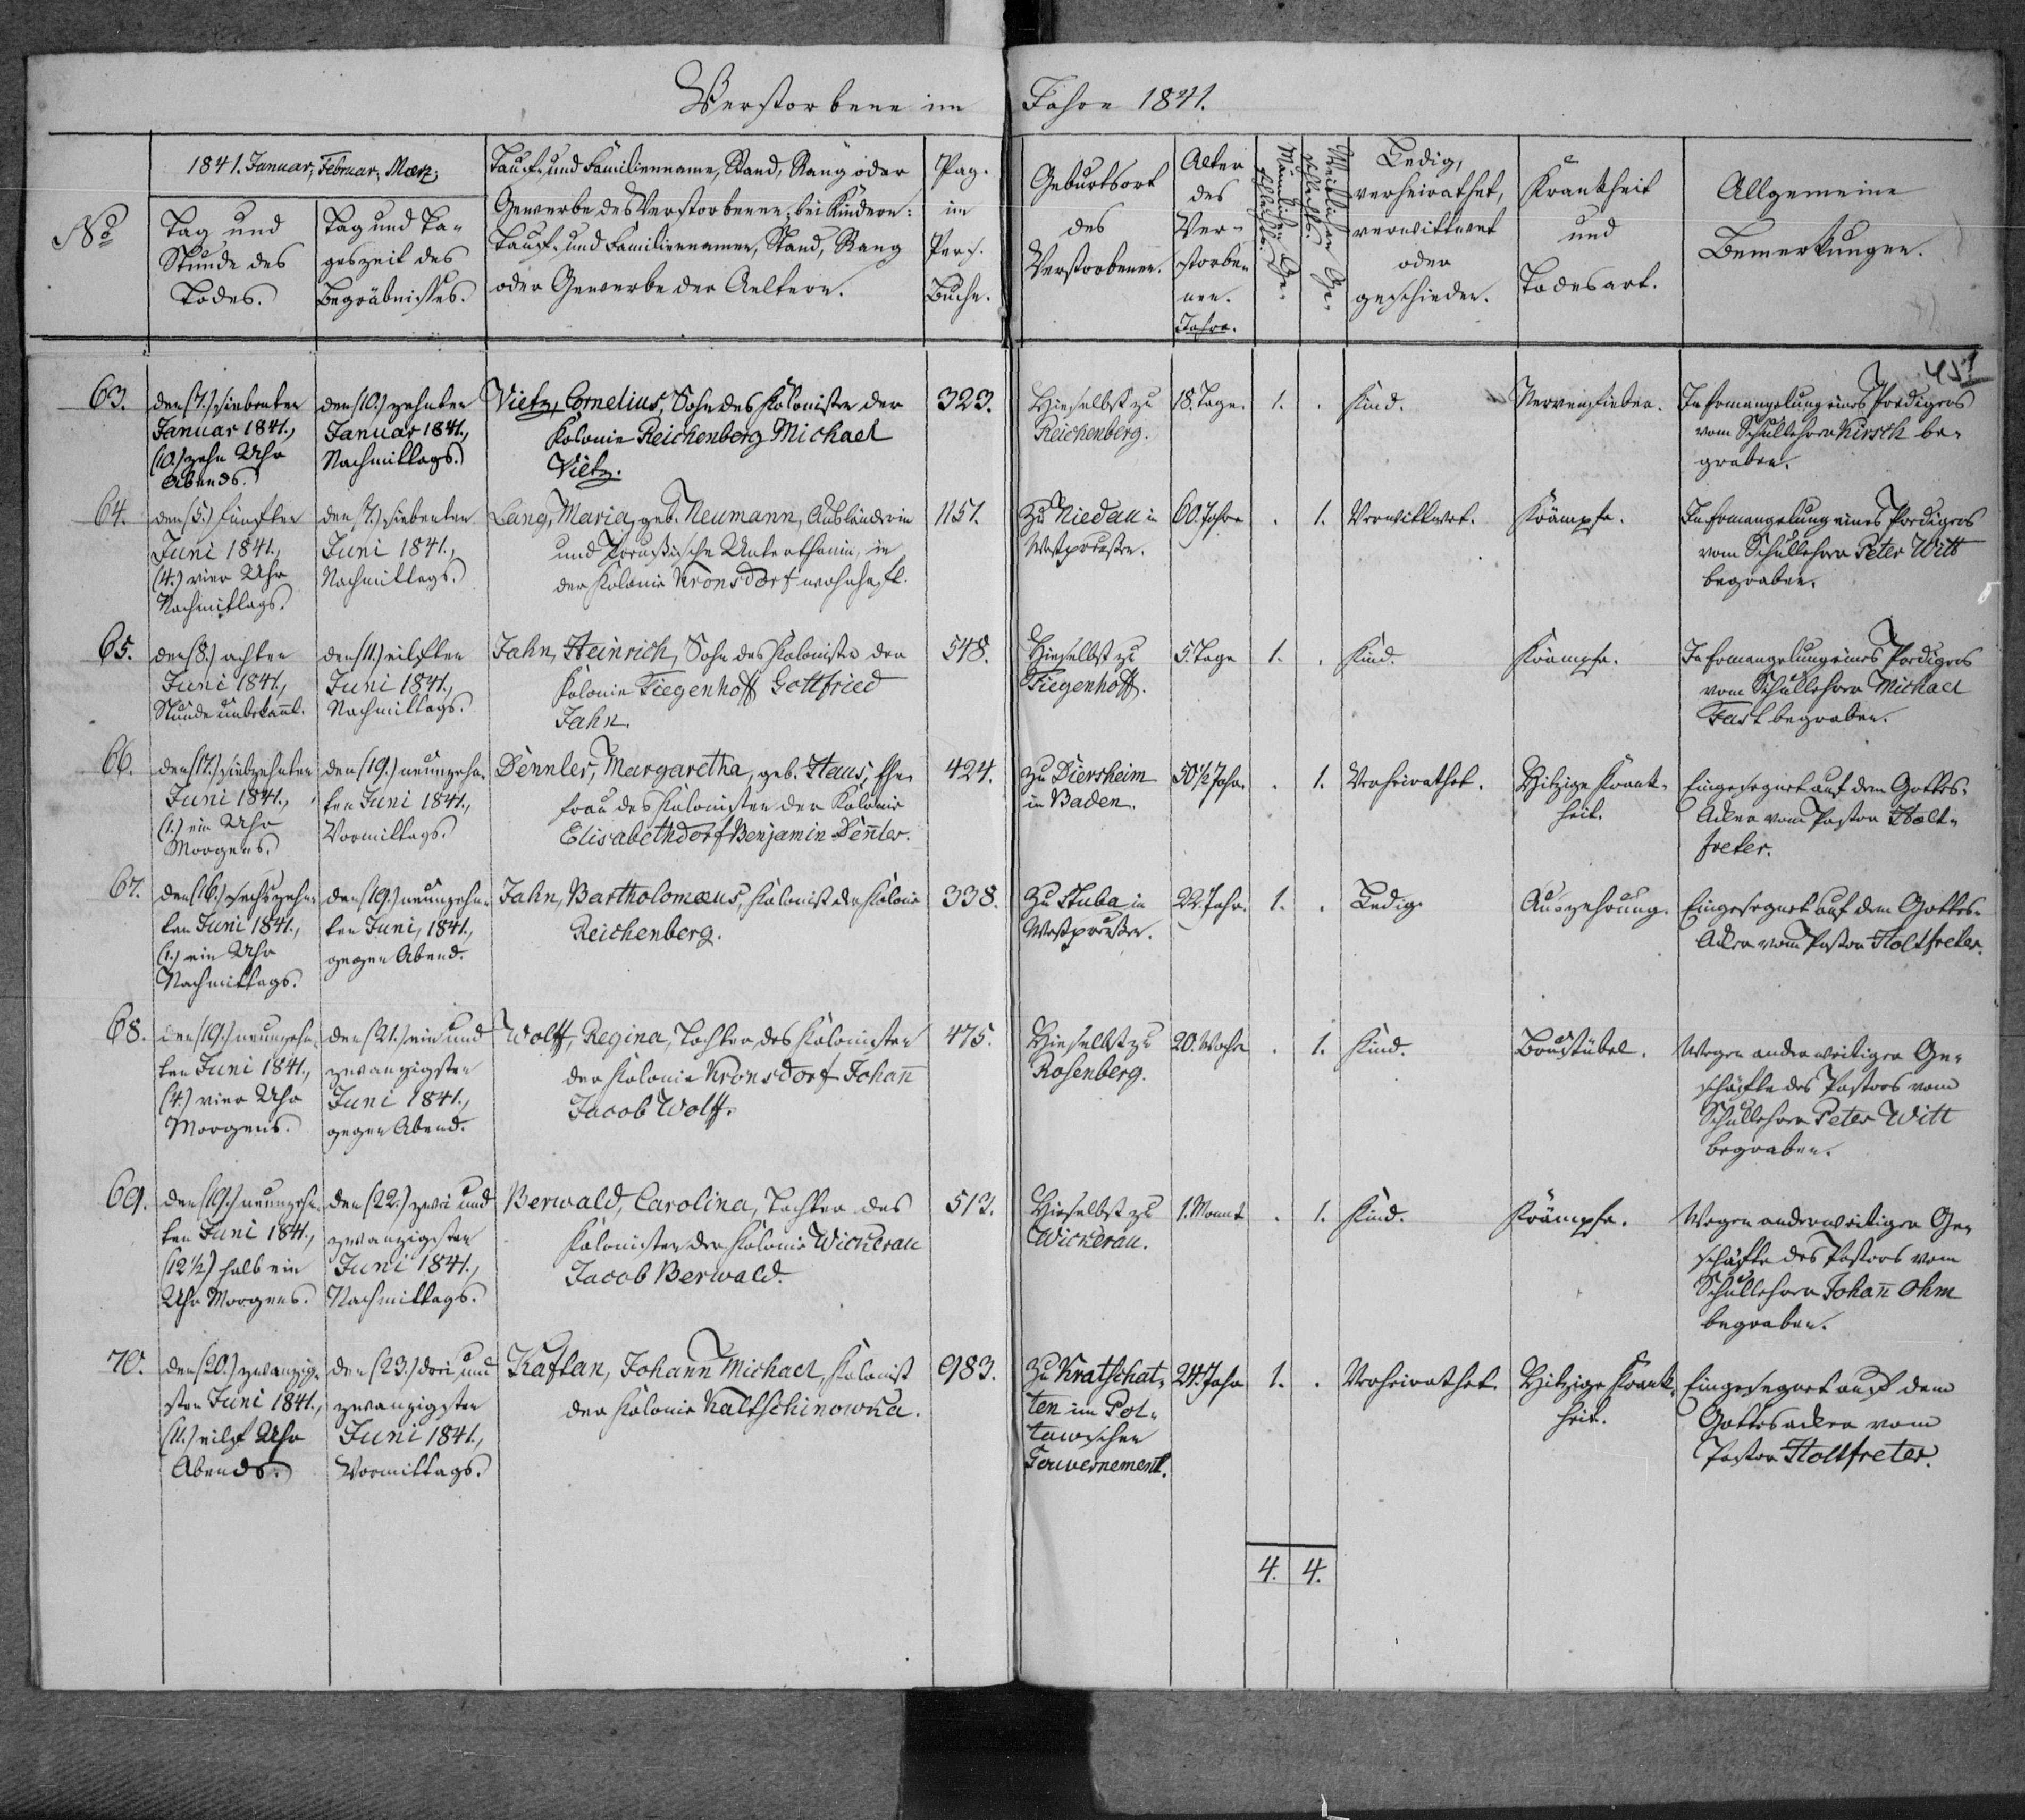 Verstorbene im Jahre 1841.
451
No
1841. Januar, Februar, Maerz,
Tag und
Stunde des
Todes.
Tag und Ta-
geszeit des
Begräbnisses.
Tauf- und Familienname, Stand, Rang oder
Gewerbe des Verstorbenen; bei Kindern:
Tauf- und Familiennamen, Stand, Rang
oder Gewerbe der Aeltern.
Pag.
im
Pers.
Buche.
Geburtsort
des
Verstorbenen.
Alter
des
Ver-
storbe-
nen.
Jahre.
Männlichen Ge-
schlechts.
Weiblichen Ge-
schlechts.
Ledig,
verheirathet,
verwittwet
oder
geschieden.
Krankheit
und
Todesart.
Allgemeine
Bemerkungen.
63.
den (7.) siebenten
Januar 1841.,
(10.) zehn Uhr
Abends.
den (10.) zehnten
Januar 1841.,
Nachmittags.
Vietz, Cornelius, Sohn des Koloniste der
Kolonie Reichenberg Michael
Vietz.
323.
Hieselbst zu
Reichenberg.
18. Tage.
1.
.
Kind.
Nervenfieber.
In Ermangelung eines Predigers
vom Schullehrer Kirsch be-
graben.
64.
den (5.) fünften
Juni 1841.,
(4.) vier Uhr
Nachmittags.
den (7.) siebenten
Juni 1841.,
Nachmittags.
Lang, Maria, geb. Neumann, Ausländerin
und Preussische Unterthanin, in
der Kolonie Kronsdorf wohnhaft.
1151.
Zu Niedau in
Westpreussen.
60. Jahre
.
1.
Verwittwet.
Krämpfe.
In Ermangelung eines Predigers
vom Schullehrer Peter Witt
begraben.
65.
den (8.) achten
Juni 1841.,
Stunde unbekannt.
den (11.) eilften
Juni 1841.,
Nachmittags.
Jahn, Heinrich, Sohn des Koloniste der
Kolonie Tiegenhoff Gottfried
Jahn.
548.
Hieselbst zu
Tiegenhoff.
5. Tage
1.
.
Kind.
Krämpfe.
In Ermangelung eines Predigers
vom Schullehrer Michael
Fast begraben.
66.
den (17.) siebzehnten
Juni 1841.,
(1.) ein Uhr
Morgens.
den (19.) neunzehn-
ten Juni 1841.,
Vormittags.
Dennler, Margaretha, geb. Haus, Ehe-
frau des Kolonisten der Kolonie
Elisabethdorf Benjamin Deñler.
424.
Zu Diersheim
in Baden.
50 1/2 Jahr.
.
1.
Verheirathet.
Hitzige Krank-
heit.
Eingesegnet auf dem Gottes-
Acker vom Pastor Holt-
freter.
67.
den (16.) sechszehn-
ten Juni 1841.,
(1.) ein Uhr
Nachmittags.
den (19.) neunzehn-
ten Juni, 1841.,
gegen Abend.
Jahn, Bartholomæus, Kolonist der Kolonie
Reichenberg.
338.
Zu Stuba in
Westpreussen.
22. Jahr.
1.
.
Ledig.
Auszehrung.
Eingesegnet auf dem Gottes-
Acker vom Pastor Holtfreter.
68.
den (19.) neunzehn-
ten Juni 1841.,
(4.) vier Uhr
Morgens.
den (21.) ein und
zwanzigsten
Juni 1841.,
gegen Abend.
Wolff, Regina, Tochter des Kolonisten
der Kolonie Kronsdorf Johañ
Jacob Wolff.
475.
Hieselbst zu
Rosenberg.
20. Woche
.
1.
Kind.
Brustübel.
Wegen anderweitiger Ge-
schäfte des Pastors vom
Schullehrer Peter Witt
begraben.
69.
den (19.) neunzehn-
ten Juni 1841.,
(12 1/2) halb ein
Uhr Morgens.
den (22.) zwei und
zwanzigsten
Juni 1841.,
Nachmittags.
Berwald, Carolina, Tochter des
Kolonisten der Kolonie Wickerau
Jacob Berwald.
513.
Hieselbst zu
Wickerau.
1. Monat
.
1.
Kind.
Krämpfe.
Wegen anderweitiger Ge-
schäfte des Pastors vom
Schullehrer Johañ Ohm
begraben.
70.
den (20.) zwanzig-
sten Juni 1841.,
(11.) eilf Uhr
Abends.
den (23.) drei und
zwanzigsten
Juni 1841.,
Vormittags.
Kaftan, Johann Michael, Kolonist
der Kolonie Kaltschinowka.
983.
Zu Kratschat-
ten im Pol-
tawischen
Gouvernement.
24. Jahr
1.
.
Verheirathet.
Hitzige Krank-
heit.
Eingesegnet auf dem
Gottesacker vom
Pastor Holtfreter.
4.
4.